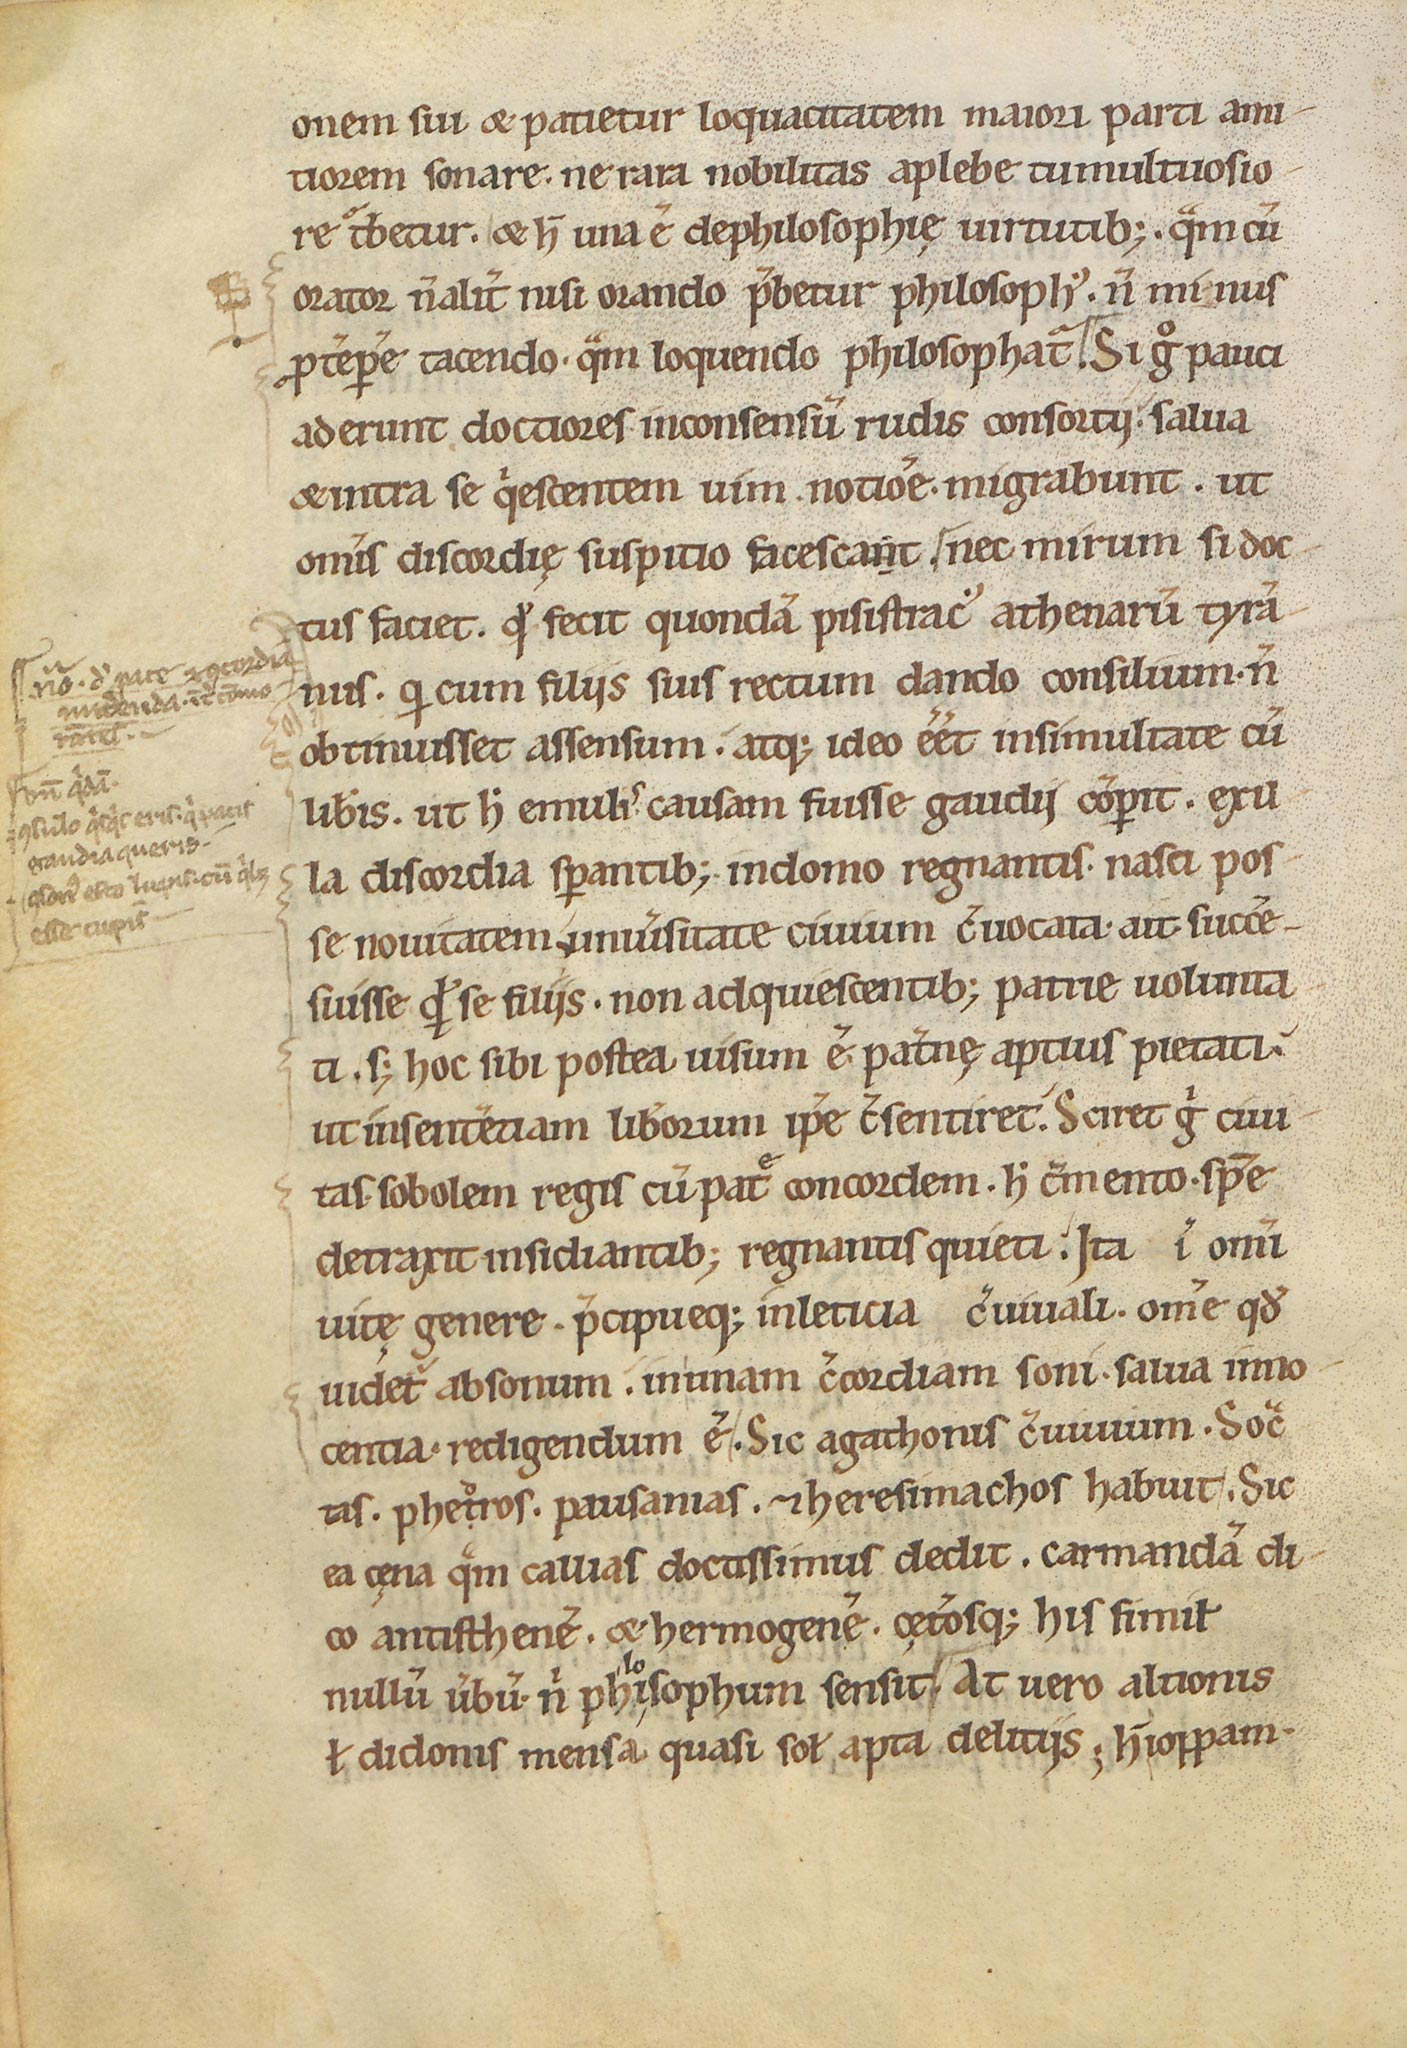 onem sui & patietur loquacitatem maiori parti ami
tiorem sonare. ne rara nobilitas aplebe tumultuosio
re t͛betur. & h̄ una ē dephilosophię uirtutib;. qͣm cū
orator n̄ alit̄ nisi orando p̄betur philosophꝰ. n̄ minus
p tēpr̄e tacendo. qͣm loquendo philosophat᷑. Si gͦ pauci
aderunt doctiores inconsensū rudis consortij. salua
& intra se qͥescentem uim notiōe. migrabunt. ut
omīs discordię suspitio facescant. nec mirum si doc
tus faciet. qđ fecit quondā pisistratꝰ athenarū tyrā
nus. qi cum filijs suis rectum dando consilium. n̄
obtinuisset assensum. atq; ideo eēt insimultate cū
lib̄is. ut h̄ emulis causam fuisse gaudij cōpit. exil
la discordia sperantib; indomo regnantis. nasci pos
se nouitatem. uniu̅sitate ciuium c̄uocata. ait succē
suisse qͥdē se filijs. non adquiescentib; patrie uolunta
ti. s; hoc sibi postea uisum ē. pat̄nę aptius pietati.
ut insentētiam lib̄orum ip̄e c̄sentiret. Sciret gͥ ciui
tas sobolem regis cū patͤ concordem. h̄ c̄mento. spēe
detraxit insidiantib; regnantis quieti. Ita ī om̄i
uitę genere. p̄cipueq; inleticia c̄uiuali. om̄e qđ
uidet᷑ absonum. inunam c̄cordiam soni. salua inno
centia. redigendum ē. Sic agathonis c̄uiuium. Soc̄
tas. phet͛ros. pausanias. ⁊ heresimachos habuit. Sic
ea cęna qͣm callias doctissimus dedit. carmandā di
co antisthenē. & hermogenē. cęt̄osq; his simił
nullū ūbū. n̄ philosophum sensit. At uero altionis
ł didonis mensa quasi soł apta delitijs; h̄ ioppam.
nō. d' pace ⁊ ꝯcordia
gaudia queris.
esse cupis